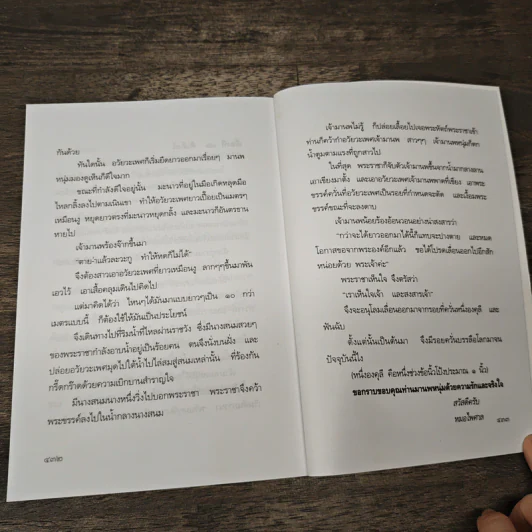 กันด้วย
ทันใดนั้น อวัยวะเพศก็เริ่มยืดยาวออกมาเรื่อยๆ มานพ
หนุ่มมองดูเห็นก็ดีใจมาก
ขณะที่กำลังดีใจอยู่นั้น มะนาวที่อยู่ในมือเกิดหลุดมือ
ไหลกลิ้งลงไปตามเนินเขา ทำให้อวัยวะเพศยาวเปื้อยเป็นเมตรๆ
เหมือนงู หยุดยาวตรงที่มะนาวหยุดกลิ้ง และมะนาวก็อันตรธาน
หายไป
เจ้ามานพร้องจ๊ากขึ้นมา
"ตายล่ะแล้วละวะกู ทำให้หดก็ไม่ได้"
จึงต้องสาวเอาอวัยวะเพศที่ยาวเหมือนงู ลากๆๆๆขึ้นมาพัน
เอวไว้ เอาเสื้อคลุมเดินไปคิดไป
แต่มาคิดได้ว่า ไหนๆได้มันมาแบบยาวๆเป็น ๑๐ กว่า
เมตรแบบนี้ ก็ต้องใช้ให้มันเป็นประโยชน์
จึงเดินทางไปที่ริมน้ำที่ไหลผ่านราชวัง ซึ่งมีนางสนมสวยๆ
ของพระราชากำลังอาบน้ำอยู่เป็นร้อยคน ตนจึงนั่งบนฝั่ง และ
ปล่อยอวัยวะเพศมุดไปใต้น้ำไปไล่สมสู่สนมเหล่านั้น ที่ร้องกัน
กรี๊ดกร๊าดด้วยความเบิกบานสำราญใจ
มีนางสนมนางหนึ่งวิ่งไปบอกพระราชา พระราชาจึงคว้า
พระขรรค์ลงไปในน้ำกลางนางสนม
๔๓๒
เจ้ามานพไม่รู้ ก็ปล่อยเลื้อยไปเจอพระหัตถ์พระราชาเข้า
ท่านก็คว้ากำอวัยวะเพศเจ้ามานพ สาวๆๆ เจ้ามานพหนุ่มก็ตก
น้ำตูมตามแรงที่ถูกสาวไป
ในที่สุด พระราชาก็จับตัวเจ้ามานพขึ้นจากน้ำมากลางลาน
เอาเขียงมาตั้ง และเอาอวัยวะเพศเจ้ามานพพาดที่เขียง เอาพระ
ขรรค์ควั่นที่อวัยวะเพศเป็นรอยที่กำหนดจะตัด และเงื้อมพระ
ขรรค์ขณะที่จะลงดาบ
เจ้ามานพน้อยร้องอ้อนวอนอย่างน่าสงสารว่า
"กว่าจะได้ยาวออกมาได้นี้ก็แทบจะปางตาย และหมด
โอกาสขอจากพระองค์อีกแล้ว ขอได้โปรดเลื่อนออกไปอีกสัก
หน่อยด้วย พระเจ้าค่ะ"
พระราชาเห็นใจ จึงตรัสว่า
"เราเห็นใจเจ้า และสงสารเจ้า"
จึงจะอนุโลมเลื่อนออกมาจากรอยที่ควั่นหนึ่งองคุลี และ
ฟันฉับ
ตั้งแต่นั้นเป็นต้นมา จึงมีรอยควั่นบรรลือโลกมาจน
ปัจจุบันนี้ไง
(หนึ่งองคุลี คือหนึ่งช่วงข้อนิ้วโป้งประมาณ ๑ นิ้ว)
ขอกราบขอบคุณท่านมานพหนุ่มด้วยความรักและจริงใจ
สวัสดีครับ
หมอไพศาล
๔๓๓